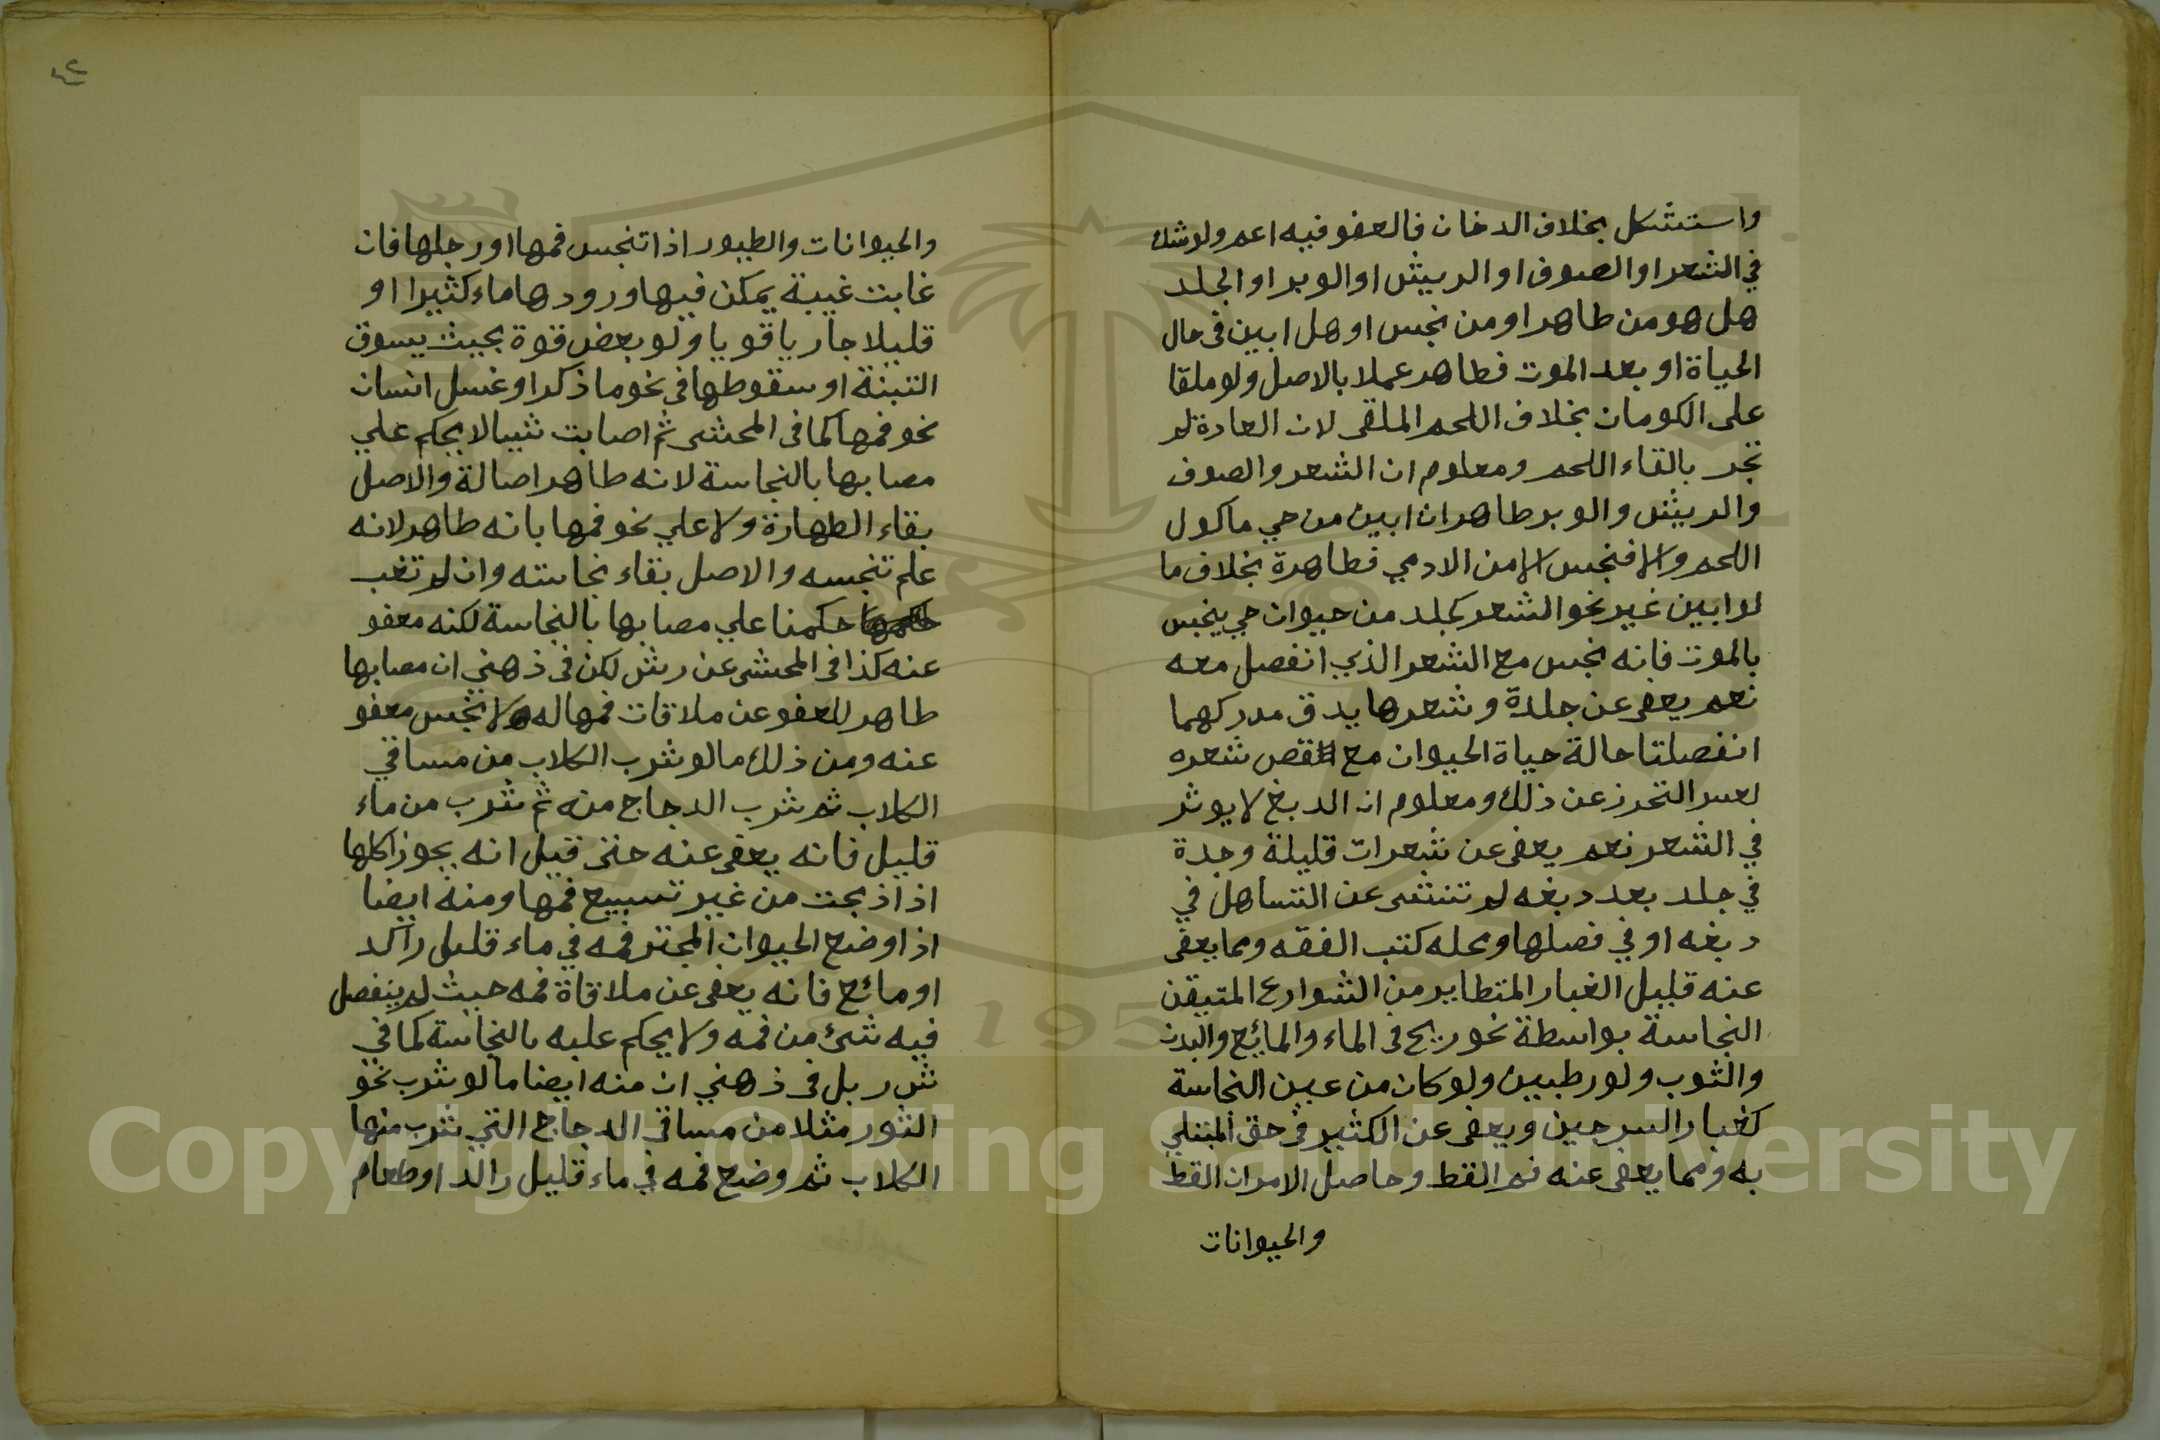 واستشكل بخلاف الدخان فالعفو فيه اعم ولو شك
في الشعر او الصوف او الريش او الوبر او الجلد
هل هو من طاهر او من نجس او هل ابين في حال
الحياة او بعد الموت فطاهر عملا بالاصل ولو ملقا
على الكومان بخلاف اللحم الملقى لان العادة لم
تجر بالقاء اللحم ومعلوم ان الشعر والصوف
والريش والوبر طاهر ان ابين من حي ماكول
اللحم والا فنجس الا من الادمي فطاهرة بخلاف ما
لو ابين غير نحو الشعر كجلد من حيوان حي ينجس
بالموت فانه نجس مع الشعر الذي انفصل معه
نعم يعفى عن جلدة وشعرها يدق مدركهما
انفصلتا حالة حياة الحيوان مع قص شعره
لعسر التحرز عن ذلك ومعلوم ان الدبغ لا يوثر
في الشعر نعم يعفى عن شعرات قليلة وجدة
في جلد بعد دبغه لم تنشى عن التساهل في
دبغه او في فصلها ومحله كتب الفقه ومما يعفى
عنه قليل الغبار المتطاير من الشوارع المتيقن
النجاسة بواسطة نحو ريح في الماء والمائع والبدن
والثوب ولو رطبين ولو كان من عين النجاسة
كغبار السرجين ويعفى عن الكثير في حق المبتلي
به ومما يعفى عنه فم القط وحاصل الامر ان القط
والحيوانات
٤٢
والحيوانات والطيور اذا تنجس فمها او رجلها فان
غابت غيبة يمكن فيها ورودها ماء كثيرا او
قليلا جاريا قويا ولو بعض قوة بحيث يسوق
التبنة او سقوطها في نحو ما ذكر او غسل انسان
نحو فمها كما في المحشى ثم اصابت شيا لا يحكم علي
مصابها بالنجاسة لانه طاهر اصالة والاصل
بقاء الطهارة ولا علي نحو فمها بانه طاهر لانه
علم تنجسه والاصل بقاء نجاسته وان لم تغب
حكمنا علي مصابها بالنجاسة لكنه معفو
عنه كذا في المحشى عن رش لكن في ذهني ان مصابها
طاهر للعفو عن ملاقات فمها له لا نجس معفو
عنه ومن ذلك ما لو شرب الكلاب من مساقي
الكلاب ثم شرب الدجاج منه ثم شرب من ماء
قليل فانه يعفى عنه حتى قيل انه يجوز اكلها
اذا ذبحت من غير تسبيع فمها ومنه ايضا
اذا وضع الحيوان المجتر فمه في ماء قليل راكد
او مائع فانه يعفى عن ملاقاة فمه حيث لم ينفصل
فيه شئ من فمه ولا يحكم عليه بالنجاسة كما في
ش ر بل في ذهني ان منه ايضا ما لو شرب نحو
الثور مثلا من مساقي الدجاج التي شرب منها
الكلاب ثم وضع فمه في ماء قليل راكد او طعام
Copyright © King Saud University
1957